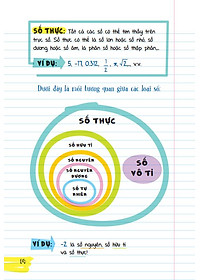 SỐ THỰC: Tất cả các số có thể tìm thấy trên
trục số. Số thực có thể là số lớn hoặc số nhỏ, số
dương hoặc số âm, là phân số hoặc số thập phân...
VÍ DỤ: 5, -17, 0.312, 1/2, π, √2, v.v.
Dưới đây là mối tương quan giữa các loại số:
SỐ THỰC
SỐ HỮU TỈ
SỐ NGUYÊN
SỐ NGUYÊN
DƯƠNG
SỐ TỰ
NHIÊN
SỐ
VÔ TỈ
VÍ DỤ: -2 là số nguyên, số hữu tỉ
và số thực!